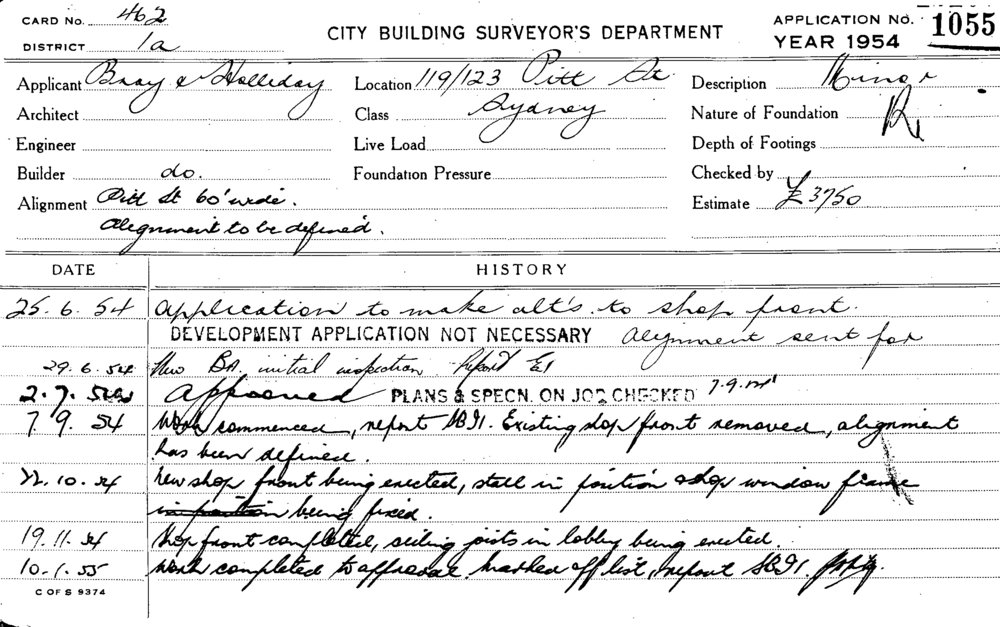 CARD No. 462
DISTRICT 1a
CITY BUILDING SURVEYOR'S DEPARTMENT
APPLICATION No. 1055
YEAR 1954
Applicant Bray & Holliday Location 119/123 Pitt St Description Minor
Architect Class Sydney Nature of Foundation
Engineer Live Load Depth of Footings
Builder do. Foundation Pressure Checked by
Alignment Pitt St 60' wide. Estimate £3750
Alignment to be defined.
DATE HISTORY
25.6.54 Application to make alt's to shop front.
DEVELOPMENT APPLICATION NOT NECESSARY Alignment sent for
29.6.54 New BA. initial inspection Report
2.7.54 Approved PLANS & SPECN. ON JOB CHECKED 7.9.54
7.9.54 Work commenced, report SBI. Existing shop front removed, alignment
has been defined.
22.10.54 New shop front being erected, stall in position shop window frame
in position being fixed.
19.11.54 Shop front completed, ceiling joists in lobby being erected.
10.1.55 Work completed to approval. Marked off list, report SBI.
C OF S 9374